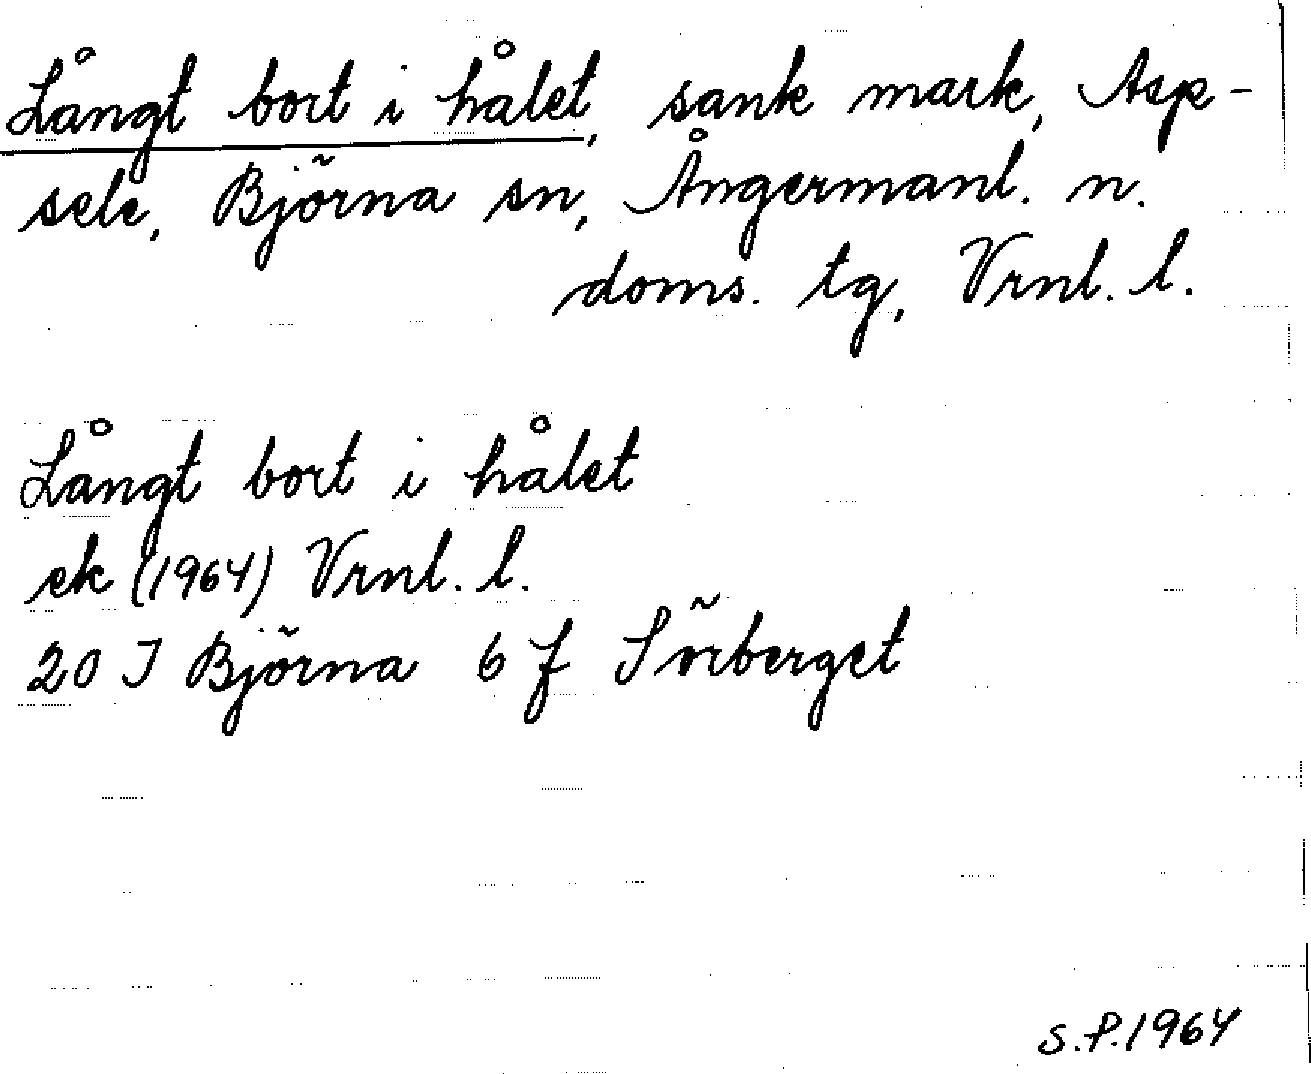 Långt bort i hålet, sank mark, Asp-
sele, Björna sn, Ångermanl. n.
doms. tg, Vrnl. l.
Långt bort i hålet
ek (1964) Vrnl. l.
20 I Björna 6 f Sörberget
S.P. 1964